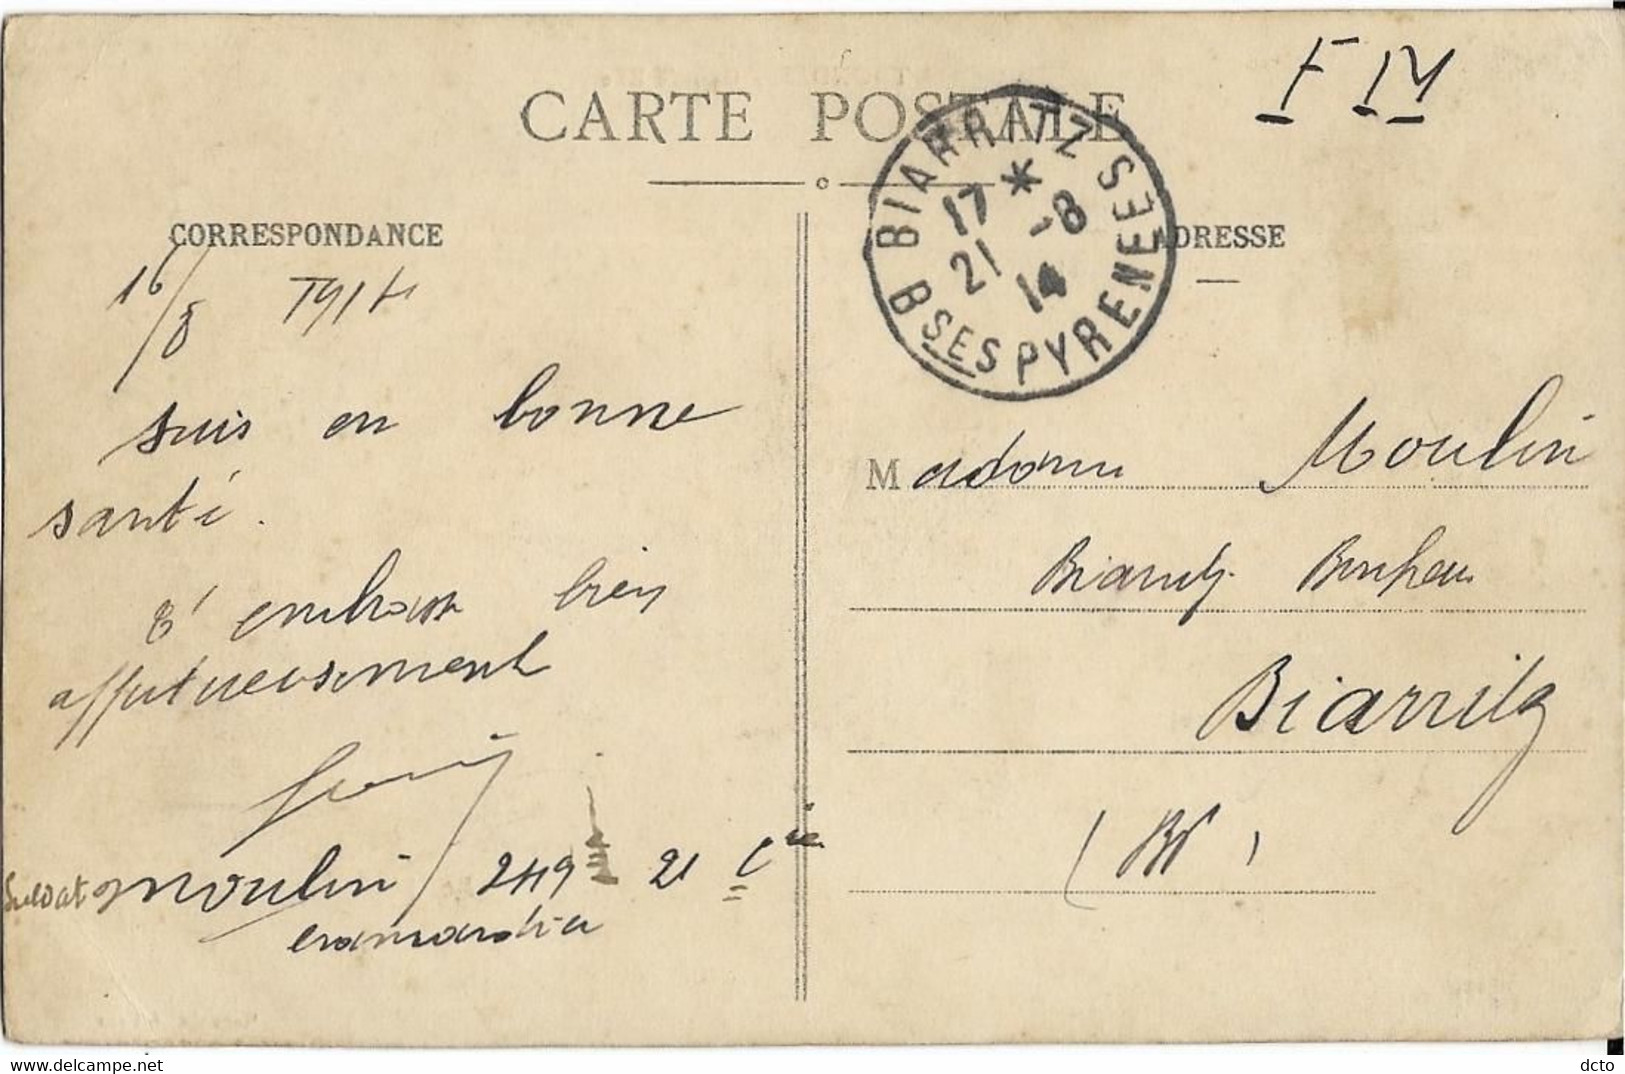 F M
CARTE POSTALE
BIARRITZ
BSES PYRENEES
17 *
21 -8
14
CORRESPONDANCE
ADRESSE
16/8 1914
suis en bonne
santé.
t'embrasse bien
affectueusement
Soldat Moulin 249 21 Cie
Madame Moulin
Biarritz Bonheur
Biarritz
(BP)
delcampe.net
dcto